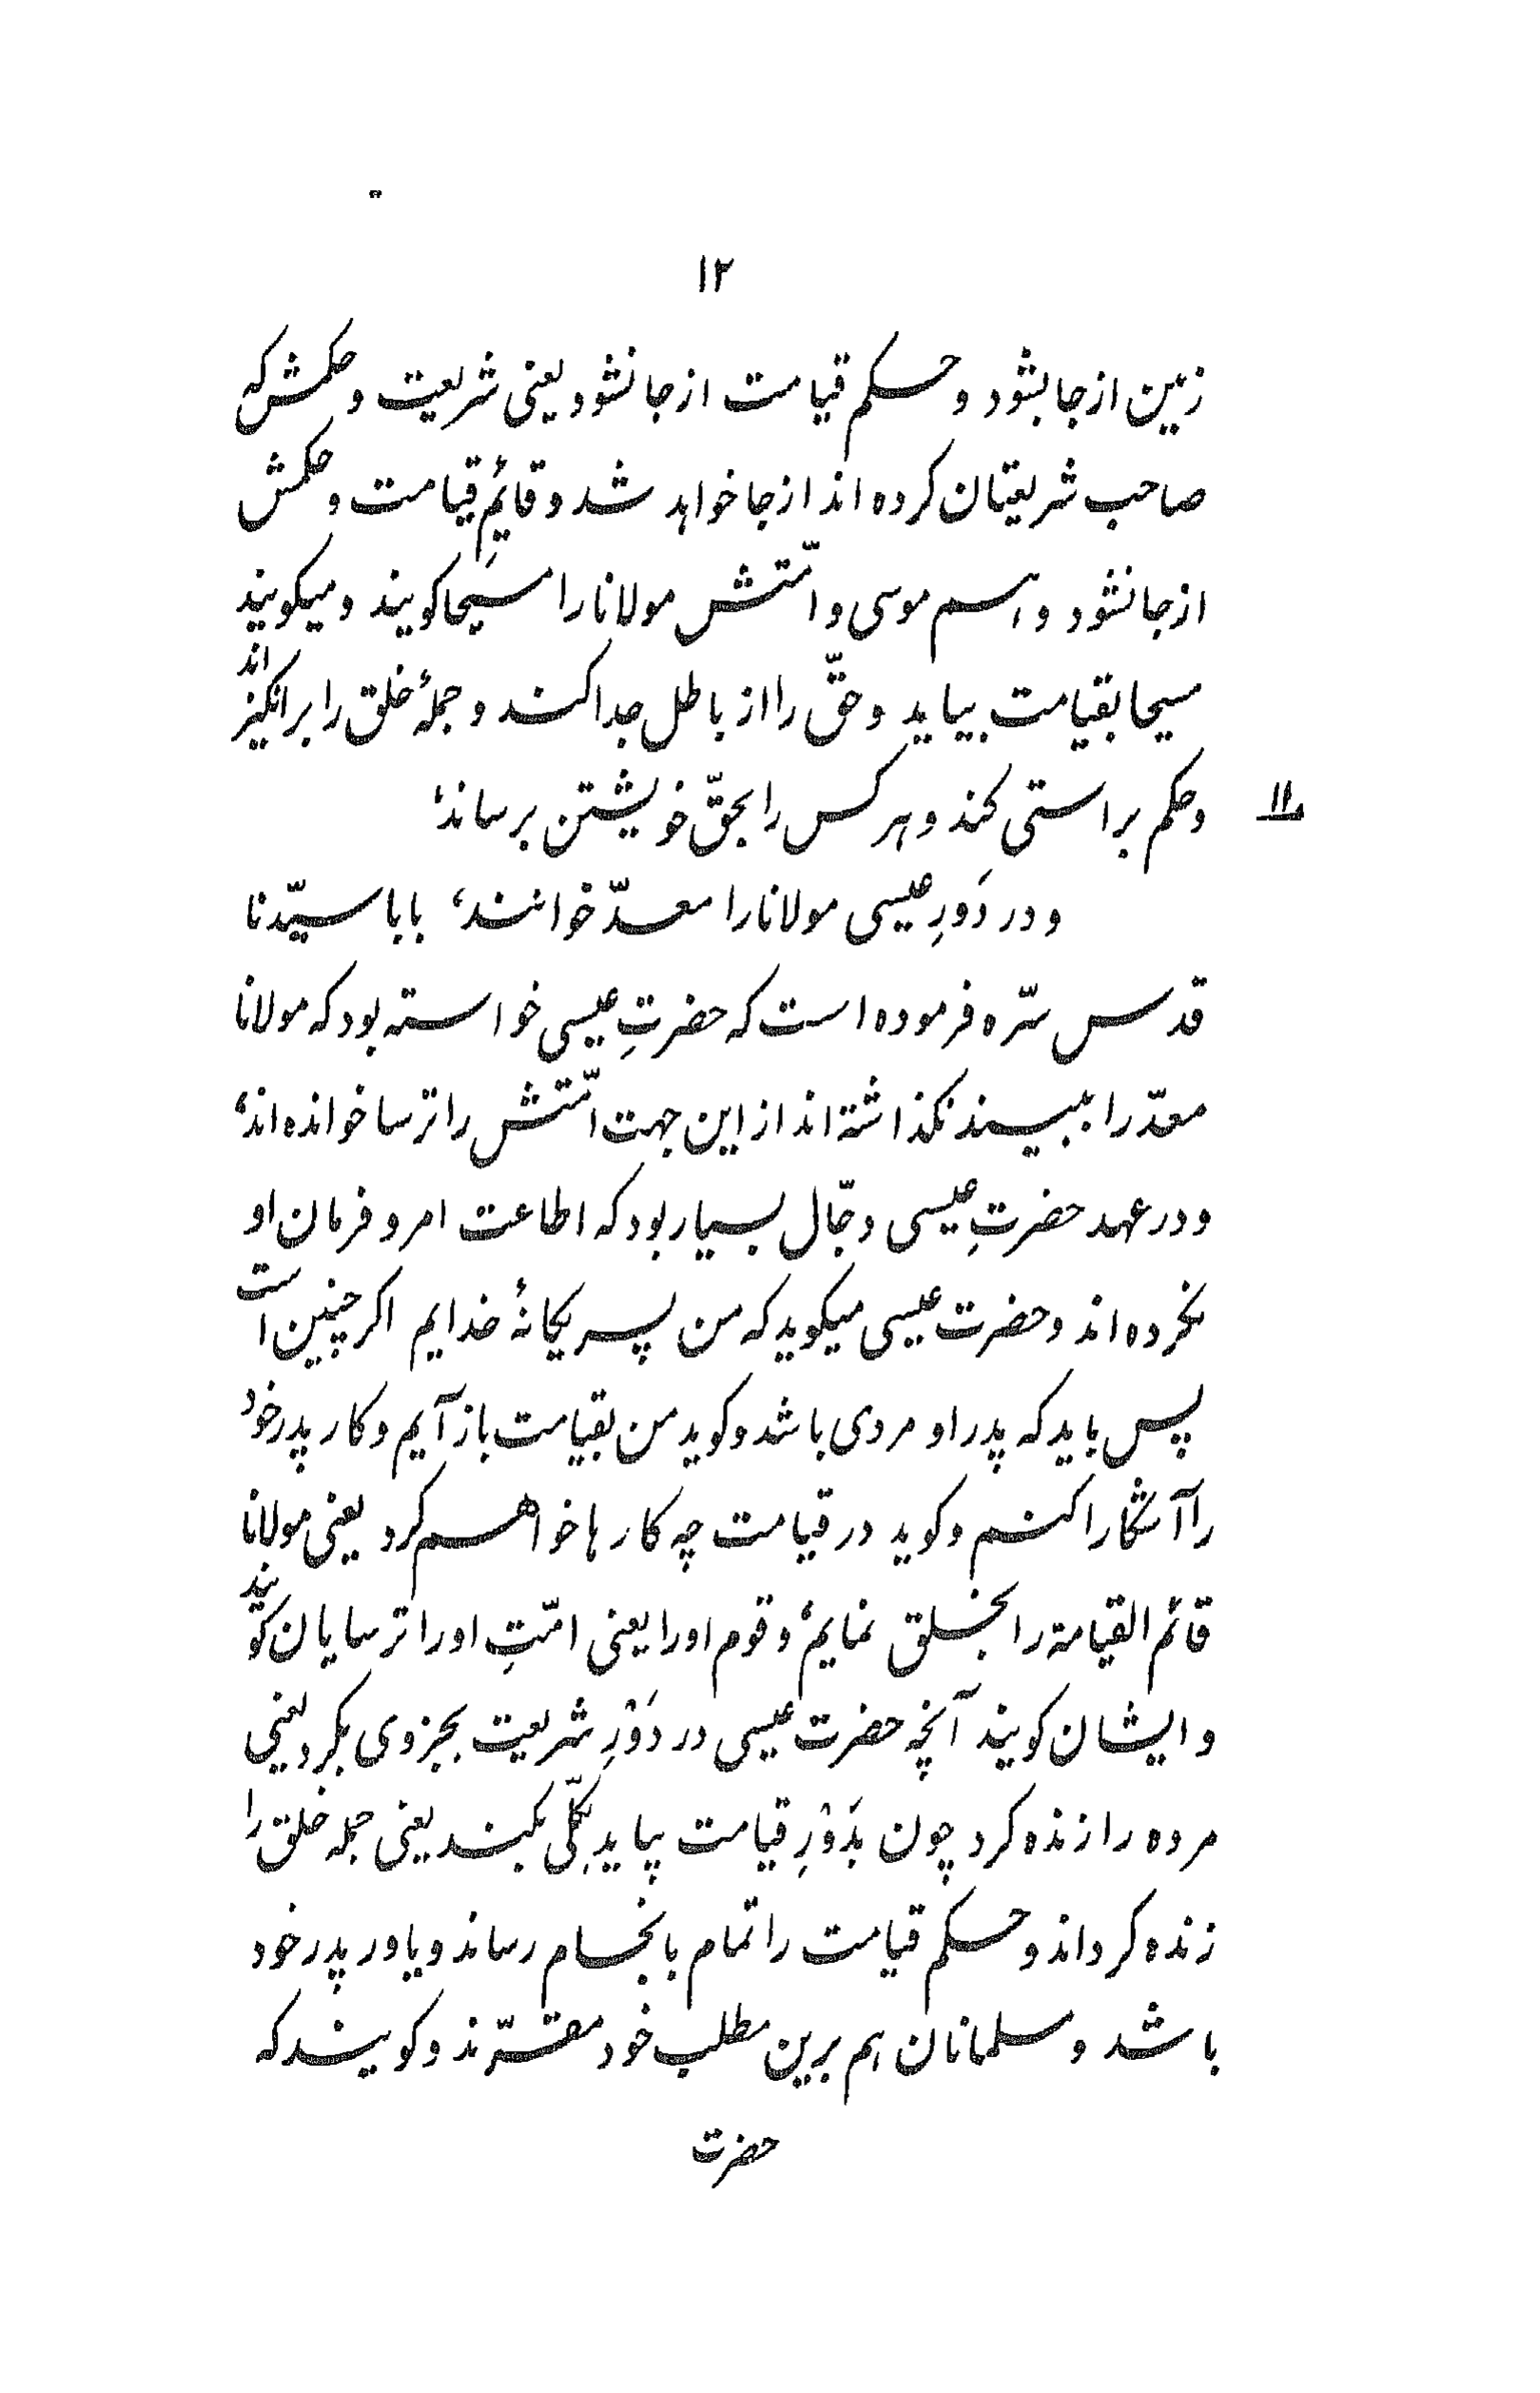 ۱۲
زمین از جا بشود و حکم قیامت از جا نشود یعنی شریعت و حکمش که
صاحب شریعتان کرده اند از جا خواهد شد و قایمِ قیامت و حکمش
از جا نشود و اسم موسی و امّتش مولانا را مسیحا کویند و میکویند
مسیحا بقیامت بیاید و حقّ را از باطل جدا کند و جملهٔ خلق را برانکیزاند
و حکم براستی کند و هر کس را بحقّ خویشتن برساند،
و در دَورِ عیسی مولانا را معدّ خوانند، بابا سیّدنا
قدس سّره فرموده است که حضرتِ عیسی خواسته بود که مولانا
معدّ را ببیند نکذاشته اند از این جهت امّتش را ترسا خوانده اند،
و در عهد حضرتِ عیسی دجّال بسیار بود که اطاعت امر و فرمان او
نکرده اند و حضرت عیسی میکوید که من پسر یکانهٔ خدایم اکر چنین است
پس باید که پدر او مردی باشد و کوید من بقیامت باز آیم و کار پدر خود
را آشکارا کنم و کوید در قیامت چه کارها خواهم کرد یعنی مولانا
قائم القیامة را بخلق نمایم، و قوم او را یعنی امّتِ او را ترسایان کویند
و ایشان کویند آنچه حضرت عیسی در دَوْرِ شریعت بجزوی بکرد یعنی
مرده را زنده کرد چون بدَوْرِ قیامت بیاید بکِلّی بکند یعنی جمله خلق را
زنده کرداند و حکم قیامت را تمام بانجام رساند و یاور پدر خود
باشد و مسلمانان هم برین مطلب خود مقرّند و کویند که
حضرت